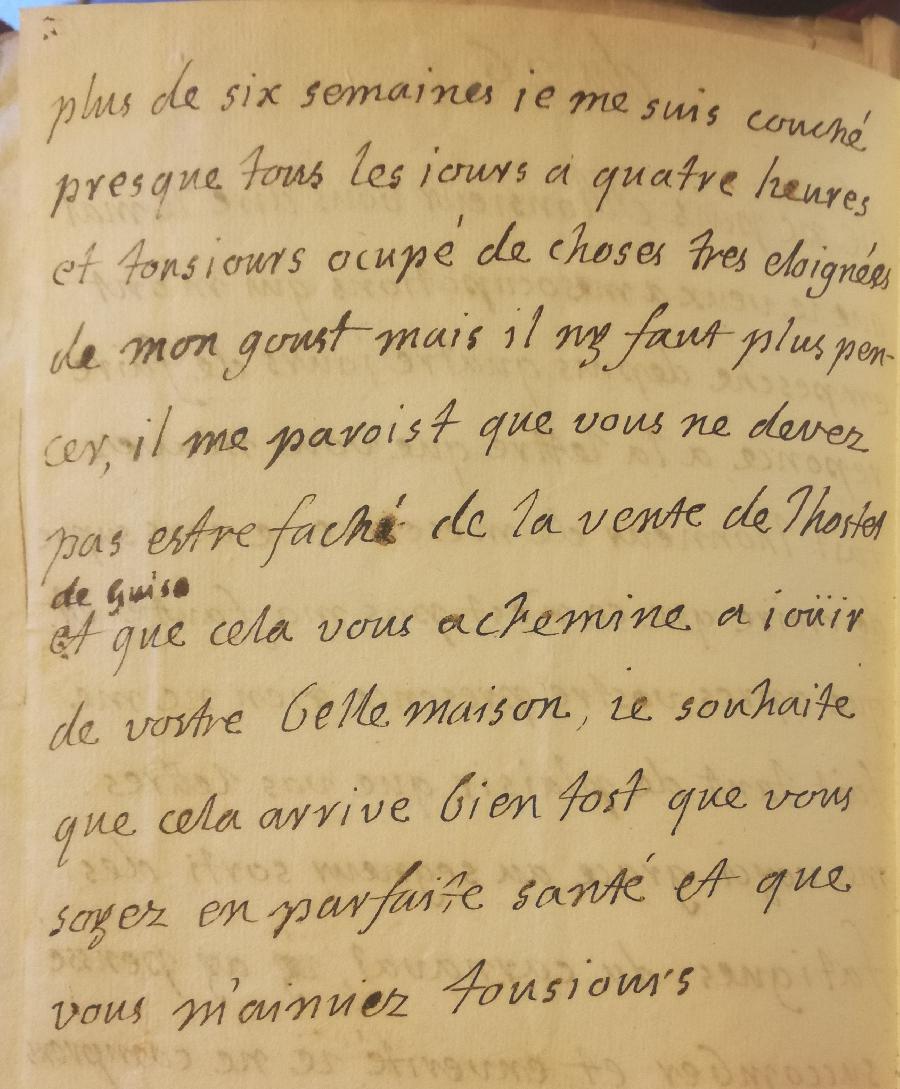 plus de six semaines ie me suis couché
presque tous les iours a quatre heures
et tousiours ocupé de choses tres eloignées
de mon goust mais il ny faut plus pen-
cer, il me paroist que vous ne devez
pas estre faché de la vente de lhostel
de Guise
et que cela vous achemine a ioüir
de vostre belle maison, ie souhaite
que cela arrive bien tost que vous
soyez en parfaite santé et que
vous m'aimiez tousiours